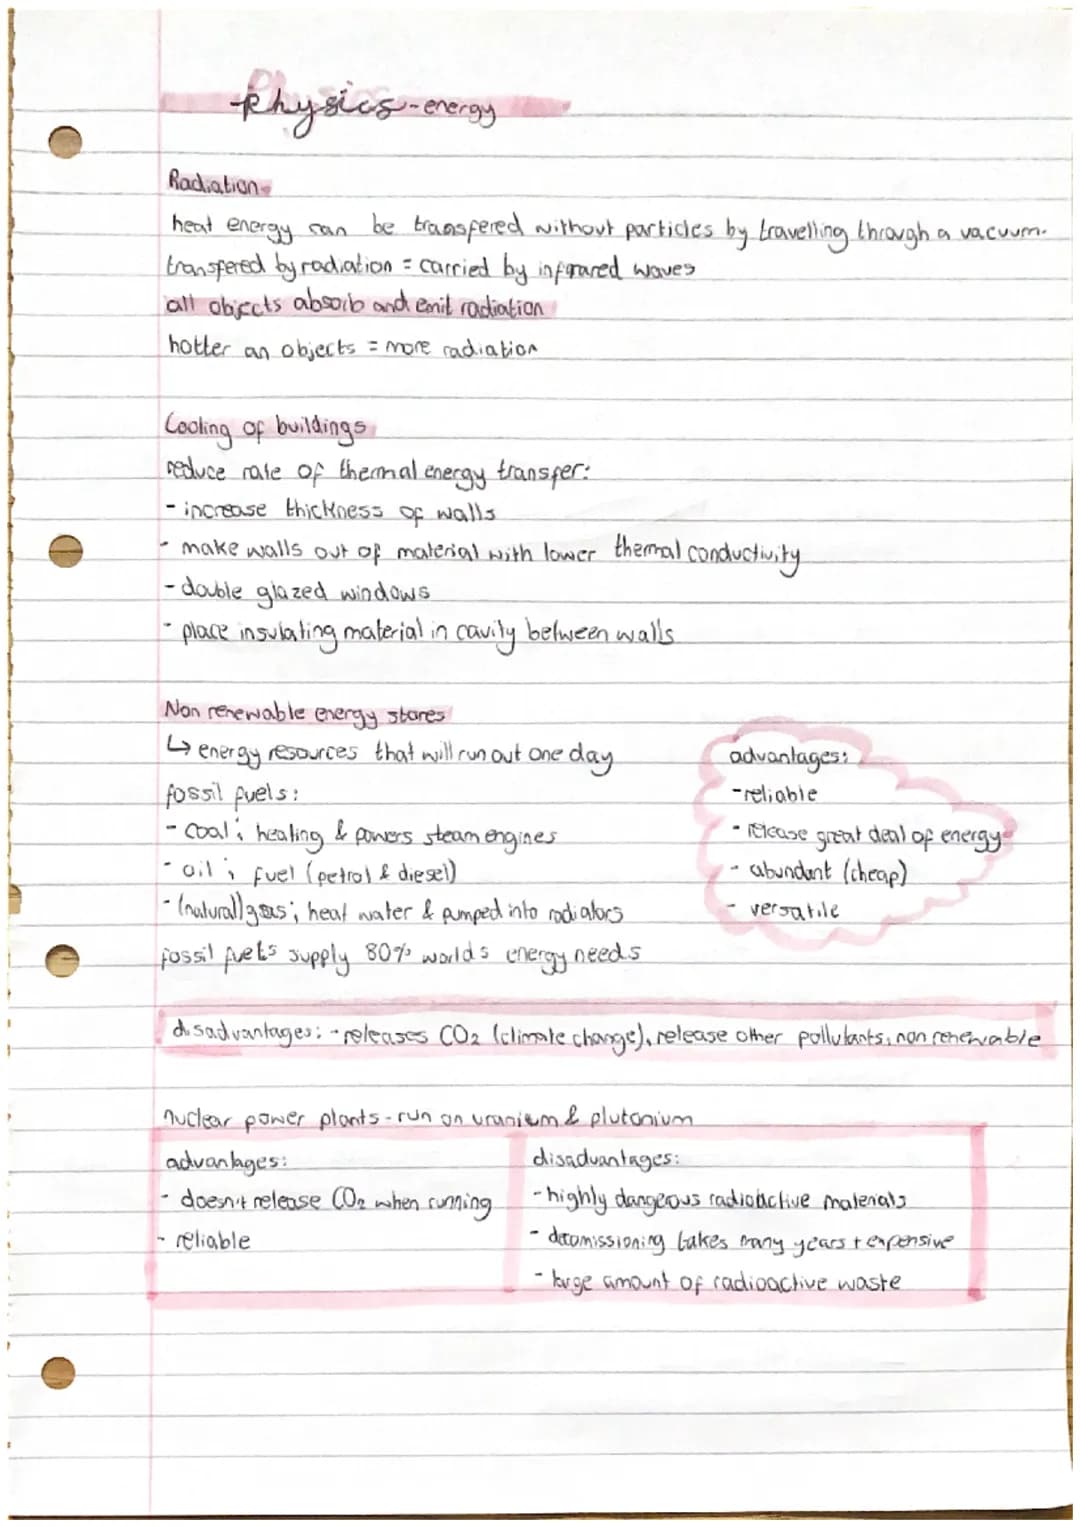 Physics - energy
Radiation
heat energy can be transfered without particles by travelling through a vacuum.
transfered by radiation = carried by infrared waves
all objects absorb and emit radiation
hotter an objects = more radiation
Cooling of buildings
reduce rate of thermal energy transfer:
- increase thickness of walls
- make walls out of material with lower thermal conductivity
- double glazed windows
- place insulating material in cavity between walls
Non renewable energy stores
↳ energy resources that will run out one day
fossil fuels:
- coal; heating & powers steam engines
- oil; fuel (petrol & diesel)
- (natural) gas; heat water & pumped into radiators
fossil fuels supply 80% worlds energy needs
advantages:
- reliable
- release great deal of energy
- abundant (cheap)
- versatile
disadvantages: - releases CO2 (climate change), release other pollutants, non renewable
nuclear power plants - run on uranium & plutonium
advantages:
- doesn't release CO2 when running
- reliable
disadvantages:
- highly dangerous radioactive materials
- decomissioning takes many years + expensive
- large amount of radioactive waste